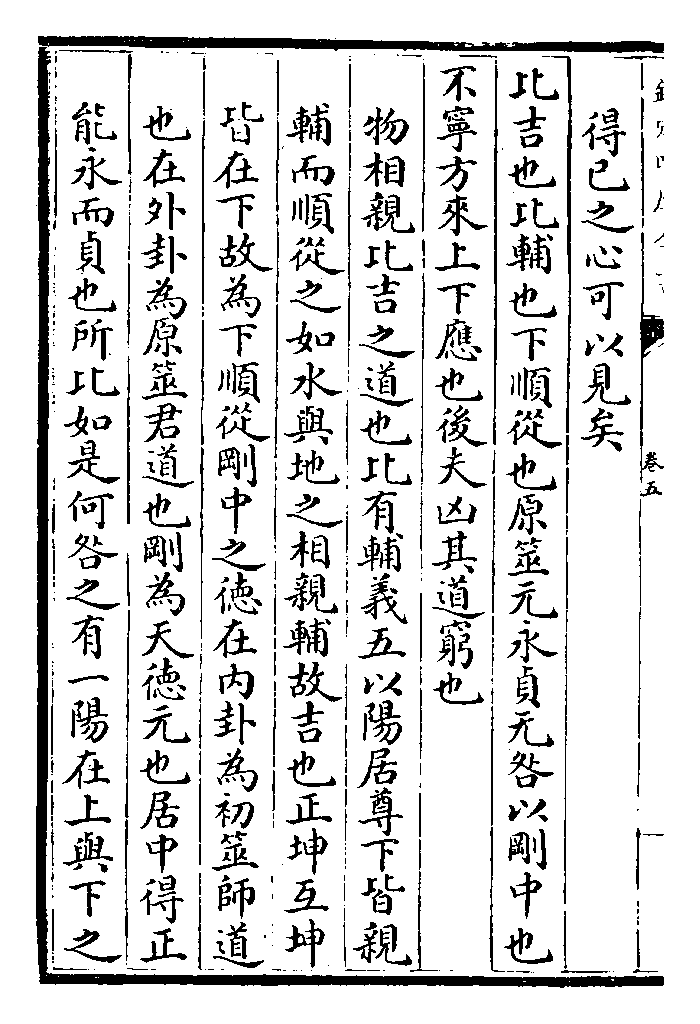 得已之心可以見矣
比吉也比輔也下順從也原筮元永貞无咎以剛中也
不寧方來上下應也後夫凶其道窮也
物相親比吉之道也比有輔義五以陽居尊下皆親
輔而順從之如水與地之相親輔故吉也正坤互坤
皆在下故為下順從剛中之徳在内卦為初筮師道
也在外卦為原筮君道也剛為天徳元也居中得正
能永而貞也所比如是何咎之有一陽在上與下之
卷五